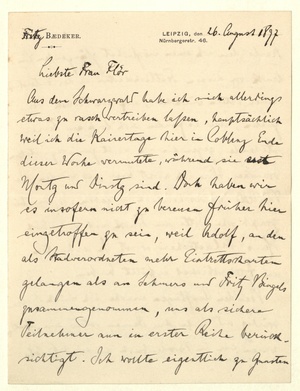 Fritz BÆDEKER.
LEIPZIG, den 26. August 1897
Nürnbergerstr. 46.
Liebste Frau Flör
Aus dem Schwarzwald habe ich mich allerdings
etwas zu rasch vertreiben lassen, hauptsächlich
weil ich die Kaisertage hier in Coblenz Ende
dieser Woche vermutete, während sie erst
Montg und Dinstg sind. Doch haben wir
es insofern nicht zu bereuen früher hier
eingetroffen zu sein, weil Adolf, an den
als Stadverordneten mehr Eintrittskarten
gelangen als an Schmers und Fritz
zusammengenommen, uns als sichere
Teilnehmer nun in erster Reihe berück-
sichtigt. Ich wollte eigentlich zu Gunsten